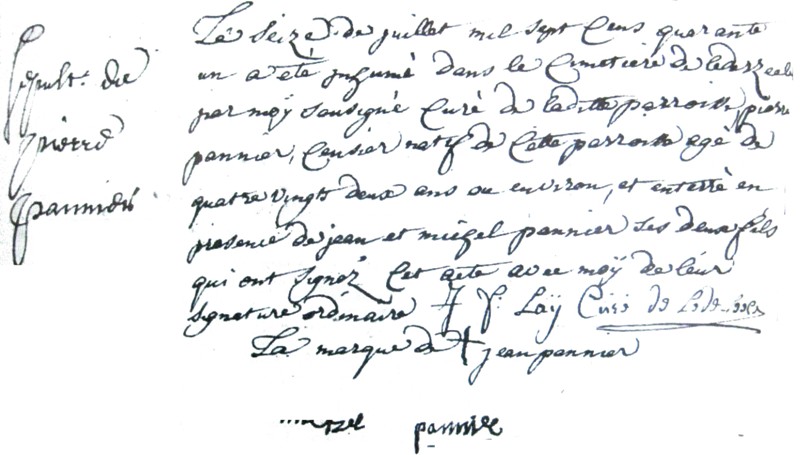 Sépult. de
pierre
pannier
Le seize de juillet mil sept Cens quarante
un a été inhumé dans le Cimetiere de
par moÿ sousigné Curé de laditte parroisse, pierre
pannier, Censier natif de Cette parroisse agé de
quatre vingts deux ans ou environ, et enterré en
presence de jean et michel pannier ses deux fils
qui ont signez Cet acte avec moÿ de leur
signature ordinaire J f. Laÿ Curé de
La marque de + jean pannier
pannier